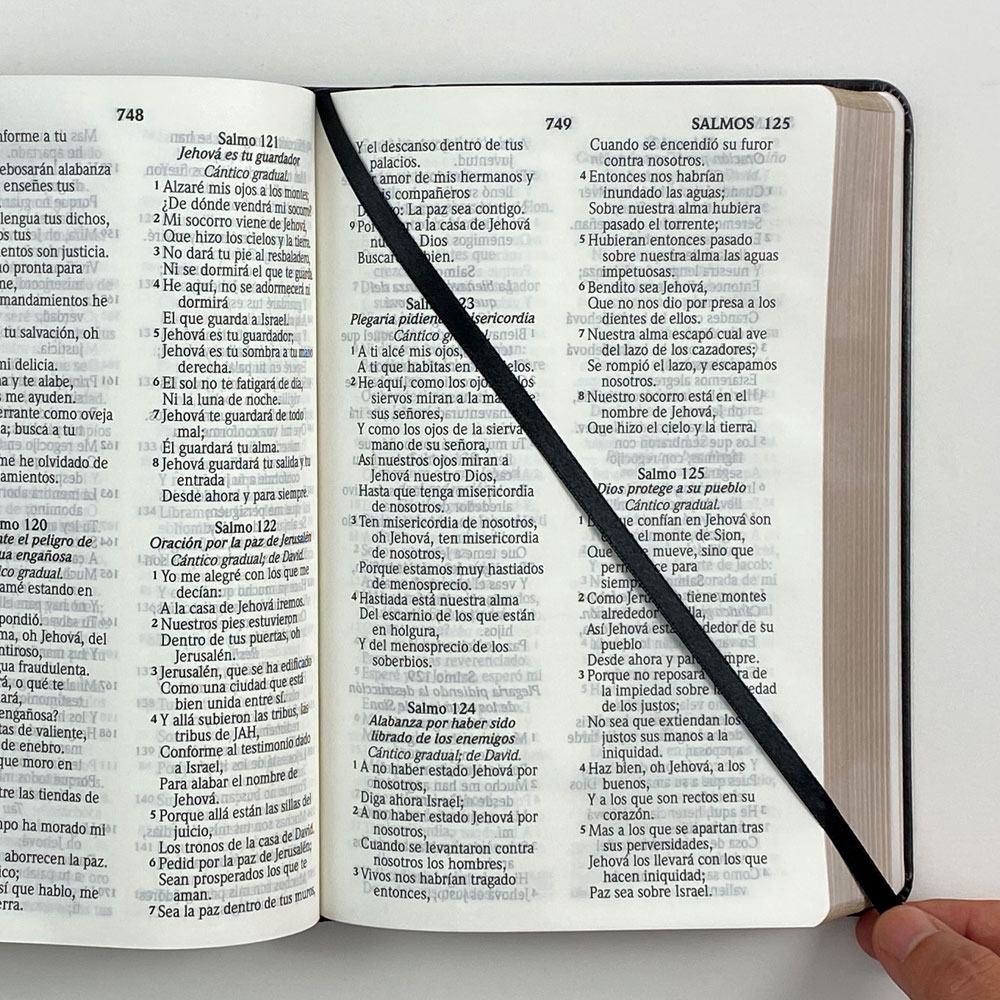 748
nforme a tu
ebosarán alabanza
enseñes tus
lengua tus dichos,
os tus
entos son justicia.
no pronta para
me,
mandamientos he
tu salvación, oh
mi delicia.
a y te alabe,
s me ayuden.
errante como oveja
a; busca a tu
me he olvidado de
amientos.
mo 120
nte el peligro de
ua engañosa
co gradual.
amé estando en
pondió.
ma, oh Jehová, del
ntiroso,
gua fraudulenta.
rá, o qué te
ará,
engañosa?
tas de valiente,
de enebro.
que moro en
tre las tiendas de
mpo ha morado mi
aborrecen la paz.
ico;
sí que hablo, me
erra.
Salmo 121
Jehová es tu guardador
Cántico gradual.
1 Alzaré mis ojos a los montes;
¿De dónde vendrá mi socorro?
2 Mi socorro viene de Jehová,
Que hizo los cielos y la tierra.
3 No dará tu pie al resbaladero,
Ni se dormirá el que te guarda.
4 He aquí, no se adormecerá ni
dormirá
El que guarda a Israel.
5 Jehová es tu guardador;
Jehová es tu sombra a tu mano
derecha.
6 El sol no te fatigará de día,
Ni la luna de noche.
7 Jehová te guardará de todo
mal;
Él guardará tu alma.
8 Jehová guardará tu salida y tu
entrada
Desde ahora y para siempre.
Salmo 122
Oración por la paz de Jerusalén
Cántico gradual; de David.
1 Yo me alegré con los que me
decían:
A la casa de Jehová iremos.
2 Nuestros pies estuvieron
Dentro de tus puertas, oh
Jerusalén.
3 Jerusalén, que se ha edificado
Como una ciudad que está
bien unida entre sí.
4 Y allá subieron las tribus, las
tribus de JAH,
Conforme al testimonio dado
a Israel,
Para alabar el nombre de
Jehová.
5 Porque allá están las sillas del
juicio,
Los tronos de la casa de David.
6 Pedid por la paz de Jerusalén;
Sean prosperados los que te
aman.
7 Sea la paz dentro de tus muros,
749 SALMOS 125
Y el descanso dentro de tus
palacios.
amor de mis hermanos y
compañeros
La paz sea contigo.
9 Por a la casa de Jehová
Dios
Buscar bien.
Salmo 123
Plegaria pidiendo misericordia
Cántico gradual.
1 A ti alcé mis ojos,
A ti que habitas en los cielos.
2 He aquí, como los ojos de los
siervos miran a la mano de
sus señores,
Y como los ojos de la sierva
mano de su señora,
Así nuestros ojos miran a
Jehová nuestro Dios,
Hasta que tenga misericordia
de nosotros.
3 Ten misericordia de nosotros,
oh Jehová, ten misericordia
de nosotros,
Porque estamos muy hastiados
de menosprecio.
4 Hastiada está nuestra alma
Del escarnio de los que están
en holgura,
Y del menosprecio de los
soberbios.
Salmo 124
Alabanza por haber sido
librado de los enemigos
Cántico gradual; de David.
1 A no haber estado Jehová por
nosotros,
Diga ahora Israel;
2 A no haber estado Jehová por
nosotros,
Cuando se levantaron contra
nosotros los hombres,
3 Vivos nos habrían tragado
entonces,
Cuando se encendió su furor
contra nosotros.
4 Entonces nos habrían
inundado las aguas;
Sobre nuestra alma hubiera
pasado el torrente;
5 Hubieran entonces pasado
sobre nuestra alma las aguas
impetuosas.
6 Bendito sea Jehová,
Que no nos dio por presa a los
dientes de ellos.
7 Nuestra alma escapó cual ave
del lazo de los cazadores;
Se rompió el lazo, y escapamos
nosotros.
8 Nuestro socorro está en el
nombre de Jehová,
Que hizo el cielo y la tierra.
Salmo 125
Dios protege a su pueblo
Cántico gradual.
1 que confían en Jehová son
el monte de Sion,
Que mueve, sino que
para
2 Como Jerusalén tiene montes
alrededor
Así Jehová está alrededor de su
pueblo
Desde ahora y para siempre.
3 Porque no reposará de
la impiedad sobre
de los justos;
No sea que extiendan los
justos sus manos a la
iniquidad.
4 Haz bien, oh Jehová, a los
buenos,
Y a los que son rectos en su
corazón.
5 Mas a los que se apartan tras
sus perversidades,
Jehová los llevará con los que
hacen iniquidad;
Paz sea sobre Israel.